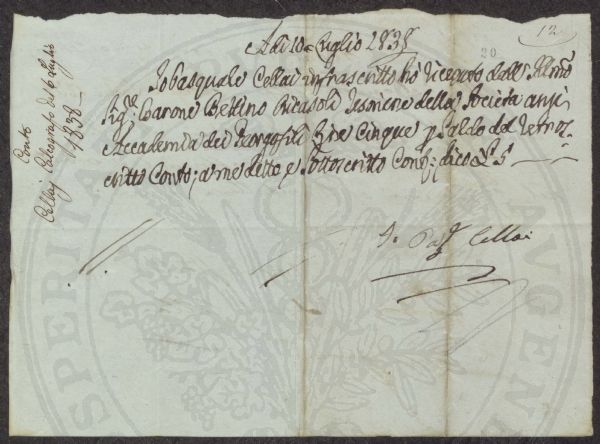 12
20
Adi 10 Luglio 1838
Io Pasquale Cellai infrascritto ho ricevuto dall' Illmo
Sig.e Barone Bettino Ricasoli della Società anzi
Accademia dei Gorgofili Lire Cinque p Saldo del retros-
critto Conto; a me detto e Sottoscritto Cont; dico £ 5
Io Pasq.e Cellai
Conto
Cellaj del 6 Luglio
1838
PROSPERITATI AUGEN